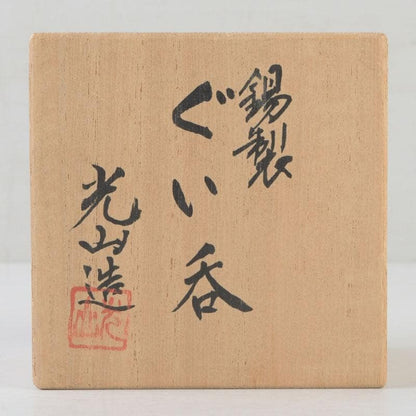 錫製
ぐい呑
光山造